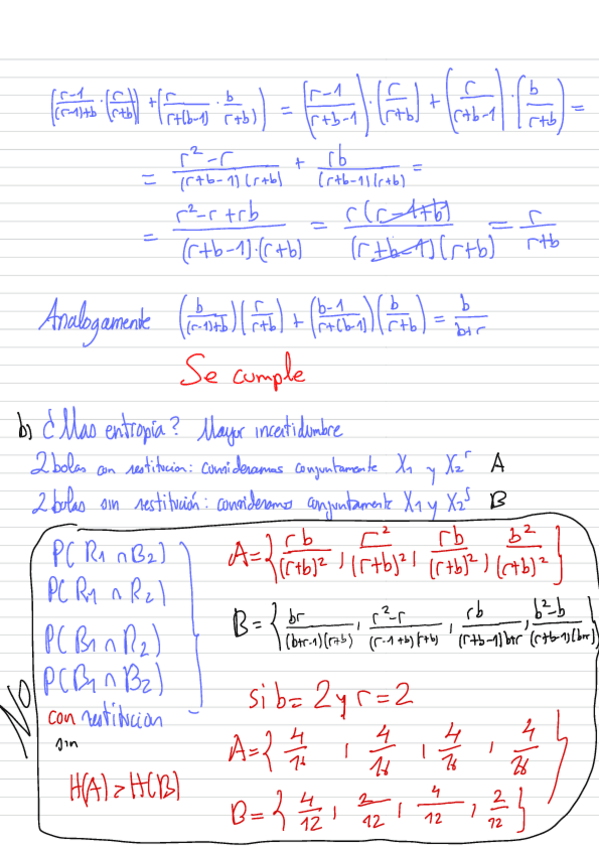 (r-1/(r-1)+b · (r/r+b)) + (r/r+(b-1) · b/r+b) = (r-1/r+b-1) · (r/r+b) + (r/r+b-1) · (b/r+b) =
= r²-r/(r+b-1)(r+b) + rb/(r+b-1)(r+b) =
= r²-r+rb/(r+b-1)·(r+b) = r(r-1+b)/(r+b-1)(r+b) = r/r+b
Analogamente (b/(r-1)+b)(r/r+b) + (b-1/r+(b-1))(b/r+b) = b/b+r
Se cumple
b) ¿Mas entropía? Mayor incertidumbre
2 bolas con restitucion: consideramos conjuntamente X1 y X2^r A
2 bolas sin restitución: consideramos conjuntamente X1 y X2^s B
P(R1 ∩ B2)
P(R1 ∩ R2)
P(B1 ∩ R2)
P(B1 ∩ B2)
con restitucion
sin
H(A) > H(B)
NO
A = {rb/(r+b)², r²/(r+b)², rb/(r+b)², b²/(r+b)²}
B = {br/(b+r-1)(r+b), r²-r/(r-1+b)(r+b), rb/(r+b-1)b+r, b²-b/(r+b-1)(b+r)}
si b=2 y r=2
A = {4/16, 4/16, 4/16, 4/16}
B = {4/12, 2/12, 4/12, 2/12}